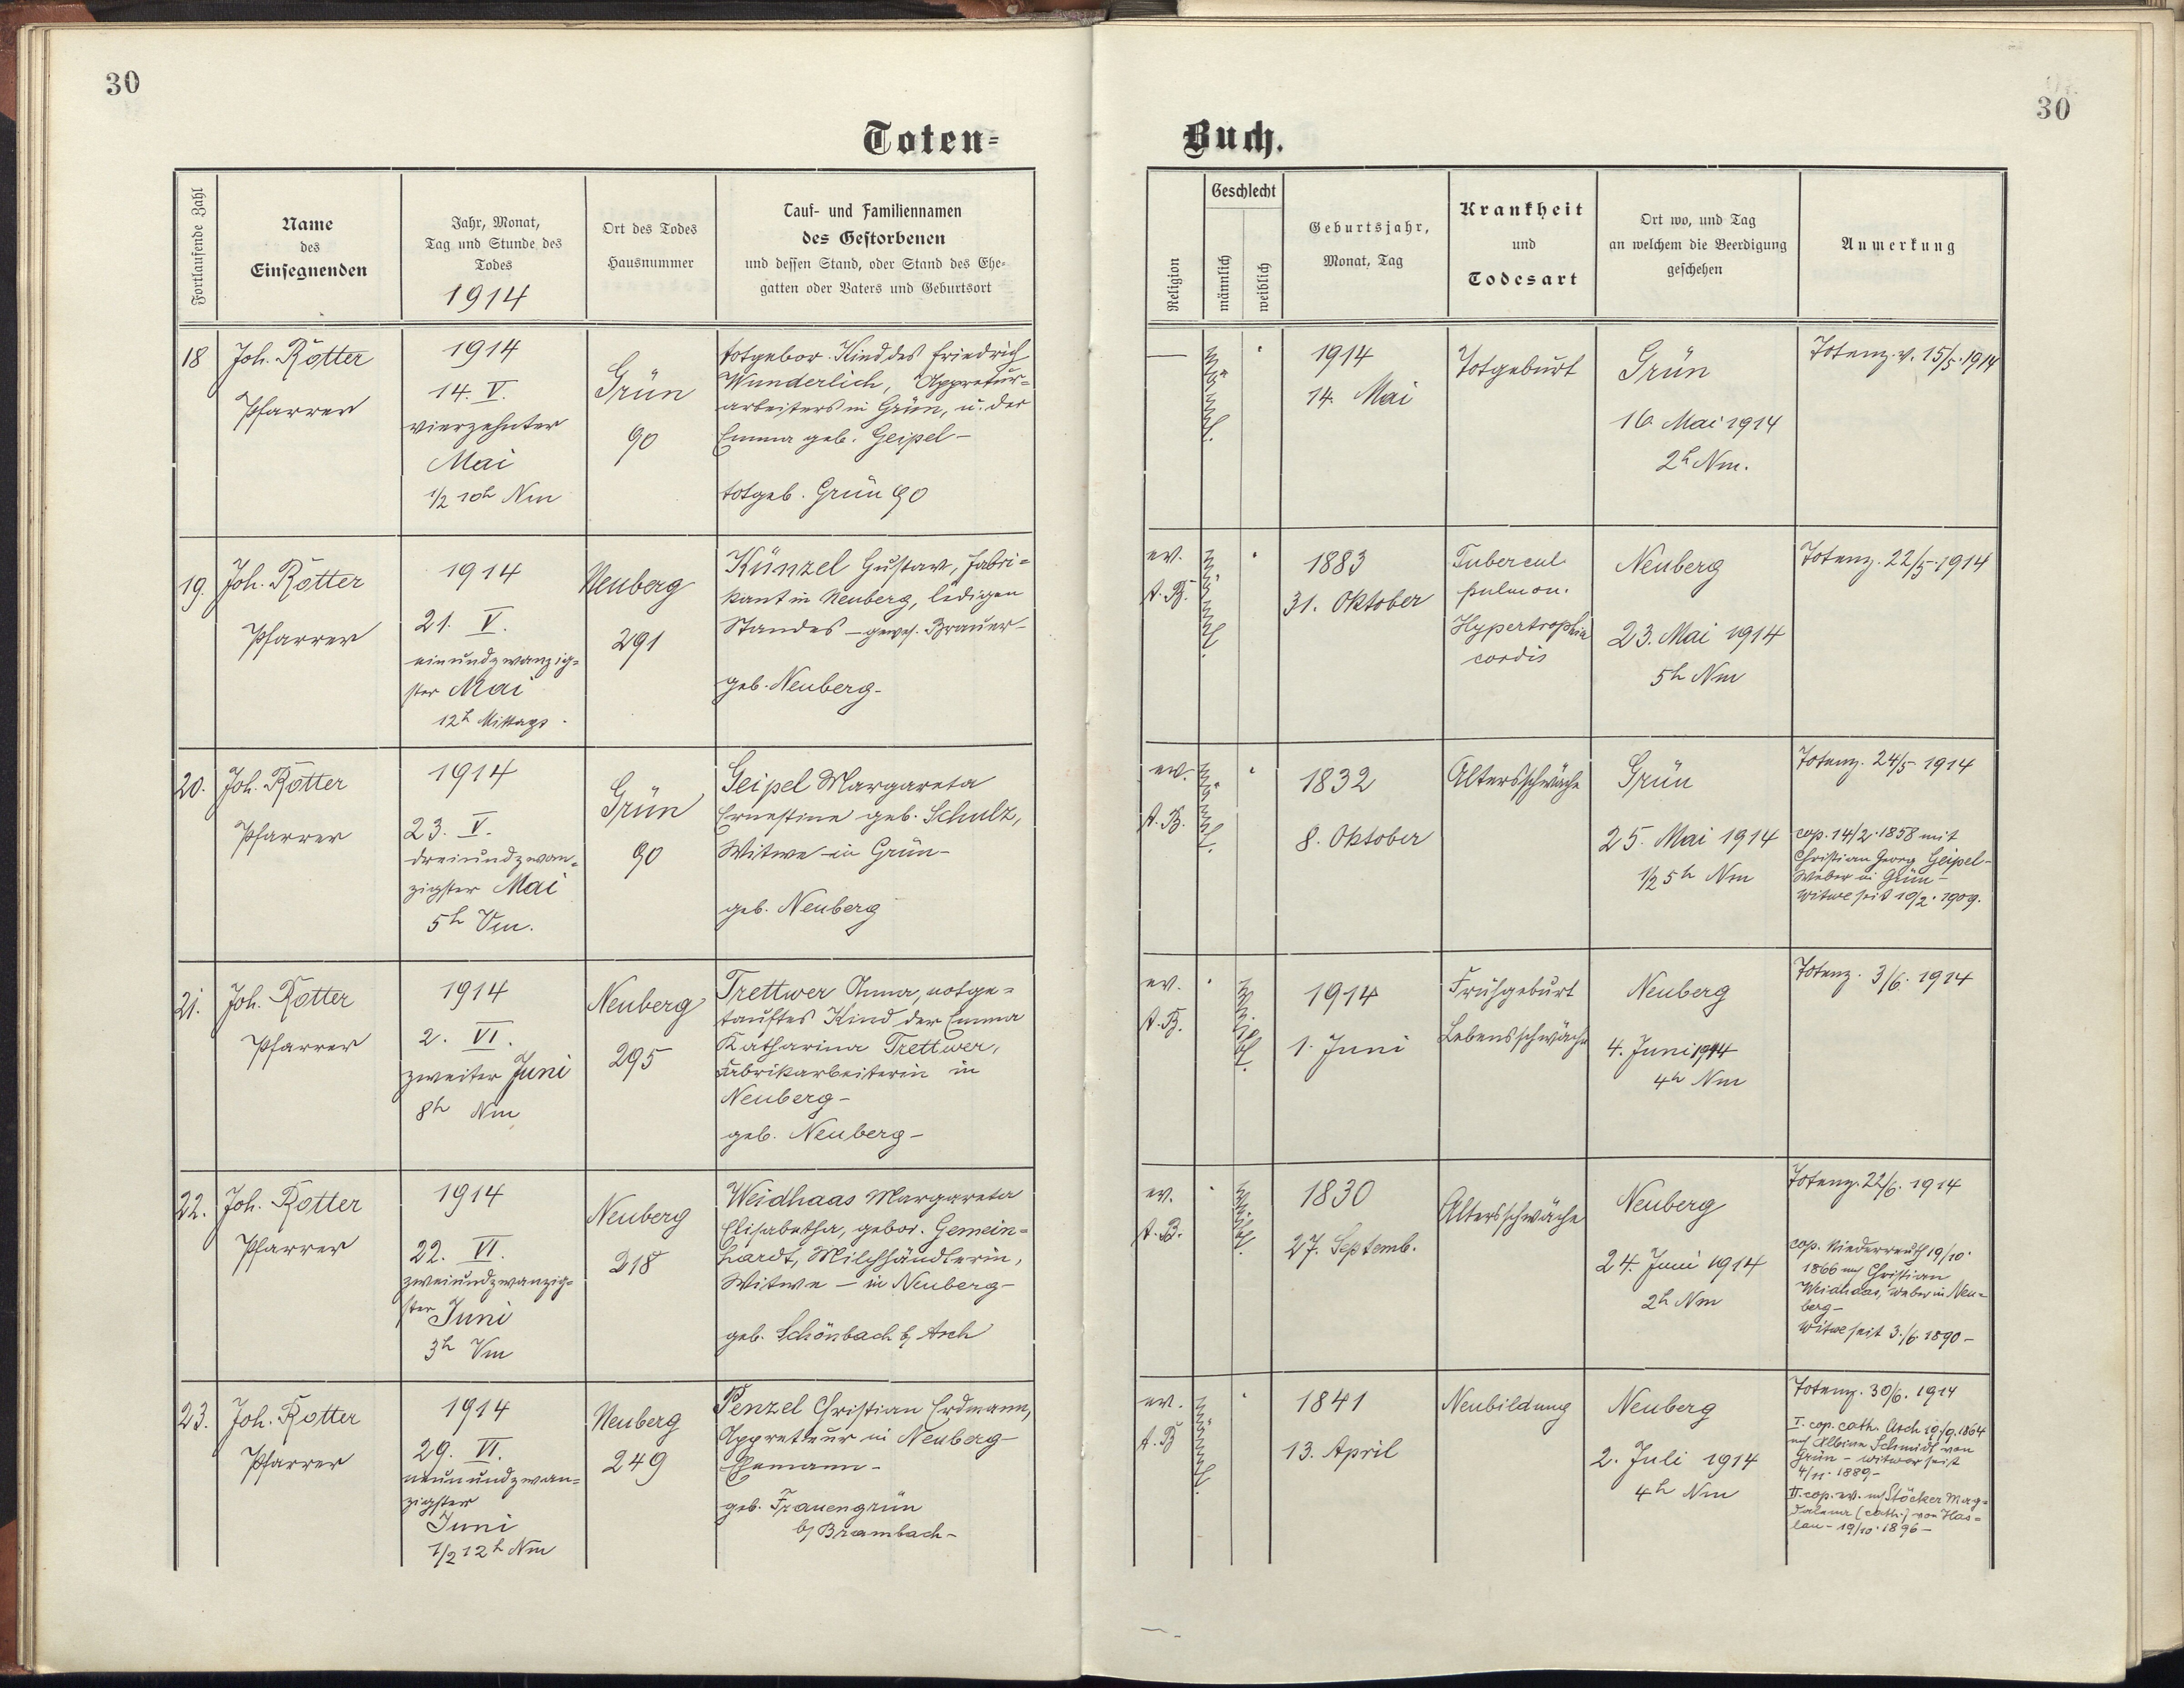 30
30
Toten=
Buch.
Fortlaufende Zahl
Name
des
Einsegnenden
Jahr, Monat,
Tag und Stunde des
Todes
1914
Ort des Todes
Hausnummer
Tauf- und Familiennamen
des Gestorbenen
und dessen Stand, oder Stand des Ehe-
gatten oder Vaters und Geburtsort
Religion
Geschlecht
männlich
weiblich
Geburtsjahr,
Monat, Tag
Krankheit
und
Todesart
Ort wo, und Tag
an welchem die Beerdigung
geschehen
Anmerkung
18
Joh. Rotter
Pfarrer
1914
14. V.
vierzehnter
Mai
1/2 10h Nm
Grün
90
totgebor. Kind des Friedrich
Wunderlich, Appretur=
arbeiters in Grün, u. der
Emma geb. Geipel-
totgeb. Grün 90
—
männl.
1914
14. Mai
Totgeburt
Grün
16. Mai 1914
2h Nm.
Totenz. v. 15/5. 1914
19.
Joh. Rotter
Pfarrer
1914
21. V.
einundzwanzig=
ster Mai
12h Mittags.
Neuberg
291
Künzel Gustav, Fabri=
kant in Neuberg, ledigen
Standes - gewes. Brauer-
geb. Neuberg-
ev.
A. B.
männl.
1883
31. Oktober
Tubercul.
pulmon.
Hypertrophia
cordis
Neuberg
23. Mai 1914
5h Nm
Totenz. 22/5. 1914
20.
Joh. Rotter
Pfarrer
1914
23. V.
dreiundzwan=
zigster Mai
5h Vm.
Grün
90
Geipel Margareta
Ernestine geb. Schulz,
Witwe in Grün-
geb. Neuberg
ev.
A. B.
männl.
1832
8. Oktober
Altersschwäche
Grün
25. Mai 1914
1/2 5h Nm
Totenz. 24/5 1914
cop. 14/2. 1858 mit
Christian Georg Geipel-
Weber in Grün-
Witwe seit 10/2. 1909.
21.
Joh. Rotter
Pfarrer
1914
2. VI.
zweiter Juni
8h Nm
Neuberg
295
Trettwer Anna, notge=
tauftes Kind der Emma
Katharina Trettwer,
Fabrikarbeiterin in
Neuberg-
geb. Neuberg-
ev.
A. B.
weibl.
1914
1. Juni
Frühgeburt
Lebensschwäche
Neuberg
4. Juni 1914
4h Nm
Totenz. 3/6. 1914
22.
Joh. Rotter
Pfarrer
1914
22. VI.
zweiundzwanzig=
ster Juni
3h Vm
Neuberg
218
Weidhaas Margareta
Elisabetha, gebor. Gemein=
hardt, Milchhändlerin,
Witwe - in Neuberg-
geb. Schönbach b/ Asch
ev.
A. B.
weibl.
1830
27. Septemb.
Altersschwäche
Neuberg
24. Juni 1914
2h Nm
Totenz. 22/6. 1914
cop. Niederreuth 19/10.
1866 m/ Christian
Weidhaas, Weber in Neu=
berg-
Witwe seit 3./6. 1890-
23.
Joh. Rotter
Pfarrer
1914
29. VI.
neunundzwan=
zigster
Juni
1/2 12h Nm
Neuberg
249
Penzel Christian Erdmann,
Appreteur in Neuberg-
Ehemann-
geb. Frauengrün
b/ Brambach-
ev.
A. B
männl.
1841
13. April
Neubildung
Neuberg
2. Juli 1914
4h Nm
Totenz. 30/6. 1914
I. cop. cath. Asch 19./9. 1864
m/ Albine Schmidt von
Grün - Witwer seit
4/11. 1889-
II. cop. ev. m/ Stöcker Mag=
dalena (cath.) von Has=
lau - 19/10. 1896-